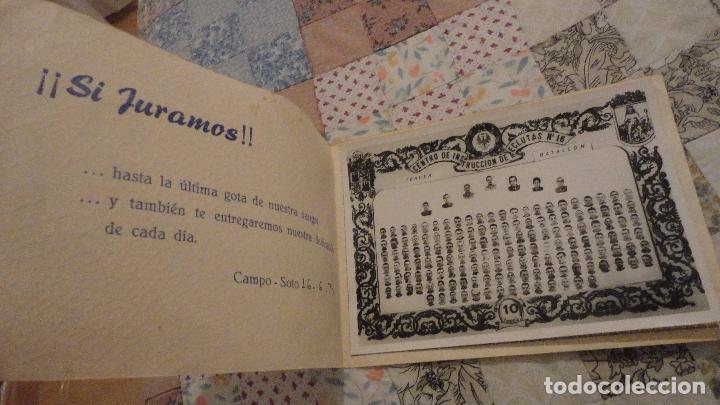 ¡¡Si Juramos!!
... hasta la última gota de nuestra sangre
... y también te entregaremos nuestra
de cada día.
Campo - Soto 16. 6.
CENTRO DE INSTRUCCION DE RECLUTAS Nº 16
TERCER BATALLON
10
todocoleccion.net